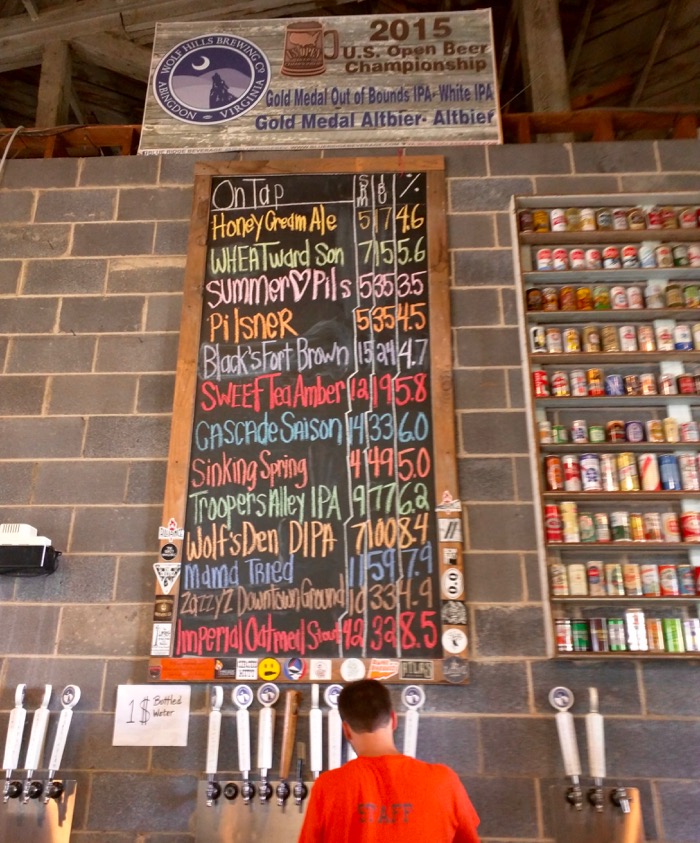 WOLF HILLS BREWING CO.
ABINGDON VIRGINIA
2015
U.S. Open Beer
Championship
Gold Medal Out of Bounds IPA- White IPA
Gold Medal Altbier- Altbier
On Tap SRM IBU %
Honey Cream Ale 5 17 4.6
WHEATward Son 7 15 5.6
Summer♡Pils 5 35 3.5
Pilsner 5 35 4.5
Black's Fort Brown 15 24 4.7
SWEET Tea Amber 12 19 5.8
Cascade Saison 4 33 6.0
Sinking Spring 4 49 5.0
Troopers Alley IPA 9 77 6.2
Wolf's Den DIPA 7 100 8.4
Mama Tried 11 59 7.9
Zazzy'z Downtown Ground 33 4.9
Imperial Oatmeal Stout 42 32 8.5
1$ Bottled
Water
STAFF